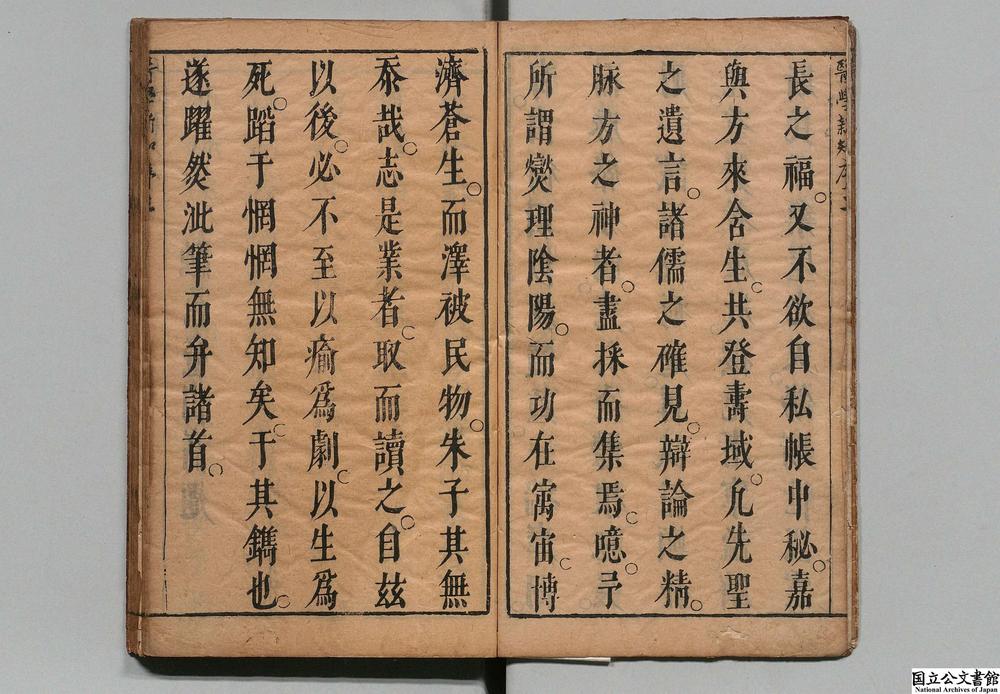 長之福。又不欲自私帳中秘。嘉
與方來含生。共登壽域。凢先聖
之遺言。諸儒之確見。辯論之精。
脉方之神者。盡採而集焉。噫。予
所謂爕理陰陽。而功在寓宙。博
濟蒼生。而澤被民物。朱子其無
忝哉。志是業者。取而讀之。自茲
以後。必不至以瘉爲劇。以生爲
死。蹈于惘惘無知矣。于其鐫也。
遂躍然泚筆而弁諸首。
国立公文書館
National Archives of Japan